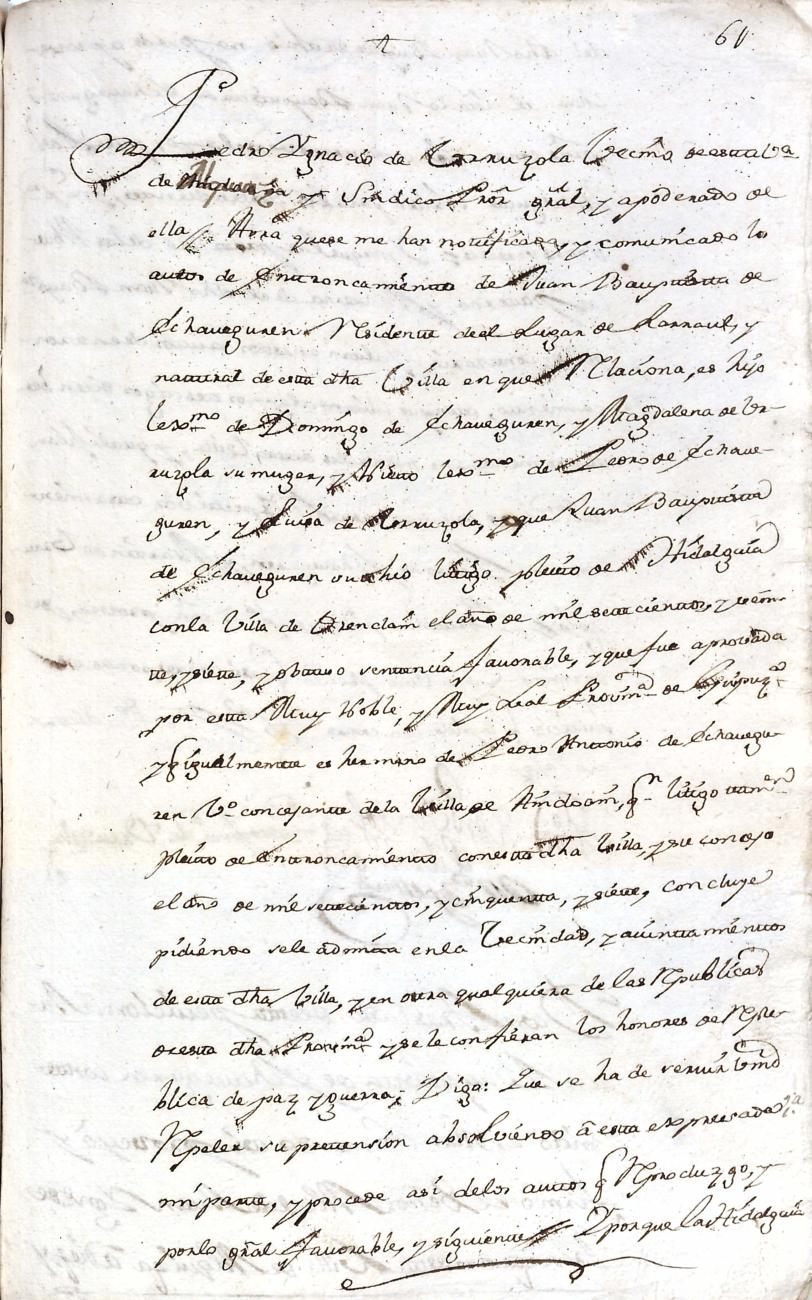 60
Pedro Ygnacio de Urruzola Vecino de esta Va
de y Sindico Pror gral, y apoderado de
ella, quese me han notificado, y comunicado los
autos de Entroncamiento de Juan Bauptista de
Echaveguren Residente del Lugar de Larraul, y
natural de esta dha Villa en que Relaciona, es hijo
lexmo de Domingo de Echaveguren, y Magdalena de Ur-
ruzola su muger, y Nieto lexmo de Pedro de Echave-
guren, y Luisa de Urruzola, y que Juan Bauptista
de Echaveguren su thio litigo pleito de Hidalguia
con la Villa de Orendain el año de mil setecientos, y vein-
te, y siete, y obtuvo sentencia favorable, y que fue aprovada
por esta Muy Noble, y Muy Leal Provina de Guipuzca
y igualmente es hermano de Pedro Antonio de Echavegu-
ren Vo concejante de la Villa de Andoain, qn litigo tamen
pleito de Entroncamiento con esta dha Villa, y su concejo
el año de mil setecientos, y cinquenta, y siete, concluye
pidiendo sele admita en la Vecindad, y aiuntamientos
de esta dha Villa, y en otra qualquiera de las Republicas
de esta dha Provina y se le confieran los honores de Repu-
blica de paz y guerra; Digo: Que se ha de servir Vmd
Repeler su pretension absolviendo a esta expresada Va
mi parte, y procede asi de los autos q Reproduzgo, y
por lo gral favorable, y siguiente Y porque la Hidalguia